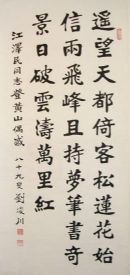 遥望天都倚客松蓮花始
信兩飛峰且持夢筆書奇
景日破雲濤萬里紅
江澤民同志登黃山偶感
八十九叟劉浚川